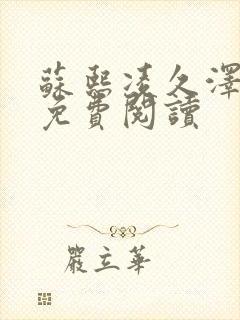 蘇熙凌久澤
免費閱讀
嚴立華